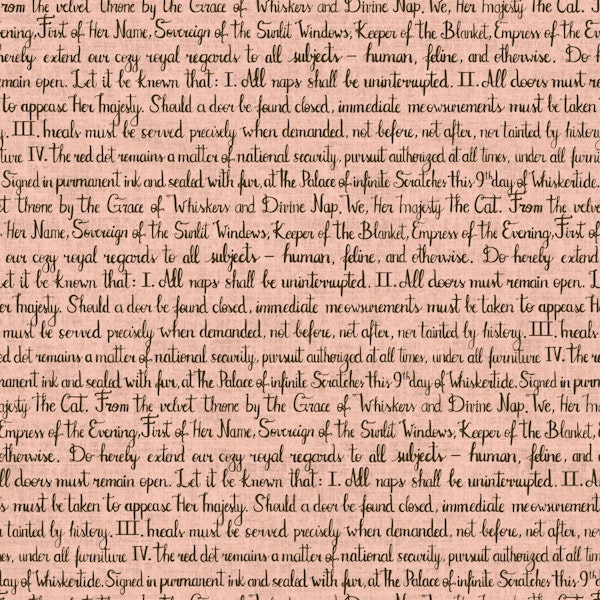 From the velvet throne by the Grace of Whiskers and Divine Nap. We, Her Majesty the Cat. F
ening, First of Her Name, Sovereign of the Sunlit Windows, Keeper of the Blanket, Empress of the E
hereby extend our cozy royal regards to all subjects – human, feline, and otherwise. Do h
emain open. Let it be known that: I. All naps shall be uninterrupted. II. All doors must re
to appease Her Majesty. Should a door be found closed, immediate meowsurements must be taken
y. III. Meals must be served precisely when demanded, not before, not after, nor tainted by history
ture IV. The red dot remains a matter of national security, pursuit authorized at all times, under all furni
Signed in purrmanent ink and sealed with fur, at The Palace of infinite Scratches this 9th day of Whiskertide.
et throne by the Grace of Whiskers and Divine Nap. We, Her Majesty the Cat. From the velvet
Her Name, Sovereign of the Sunlit Windows, Keeper of the Blanket, Empress of the Evening, First of
our cozy royal regards to all subjects – human, feline, and otherwise. Do hereby extend
Let it be known that: I. All naps shall be uninterrupted. II. All doors must remain open. L
er Majesty. Should a door be found closed, immediate meowsurements must be taken to appease H
must be served precisely when demanded, not before, not after, nor tainted by history. III. Meals
ed dot remains a matter of national security, pursuit authorized at all times, under all furniture IV. The re
manent ink and sealed with fur, at The Palace of infinite Scratches this 9th day of Whiskertide. Signed in purrm
ajesty the Cat. From the velvet throne by the Grace of Whiskers and Divine Nap. We, Her M
Empress of the Evening, First of Her Name, Sovereign of the Sunlit Windows, Keeper of the Blanket, E
otherwise. Do hereby extend our cozy royal regards to all subjects – human, feline, and
ll doors must remain open. Let it be known that: I. All naps shall be uninterrupted. II. A
s must be taken to appease Her Majesty. Should a door be found closed, immediate meowsurement
r tainted by history. III. Meals must be served precisely when demanded, not before, not after, nor
es, under all furniture IV. The red dot remains a matter of national security, pursuit authorized at all tim
day of Whiskertide. Signed in purrmanent ink and sealed with fur, at The Palace of infinite Scratches this 9th d